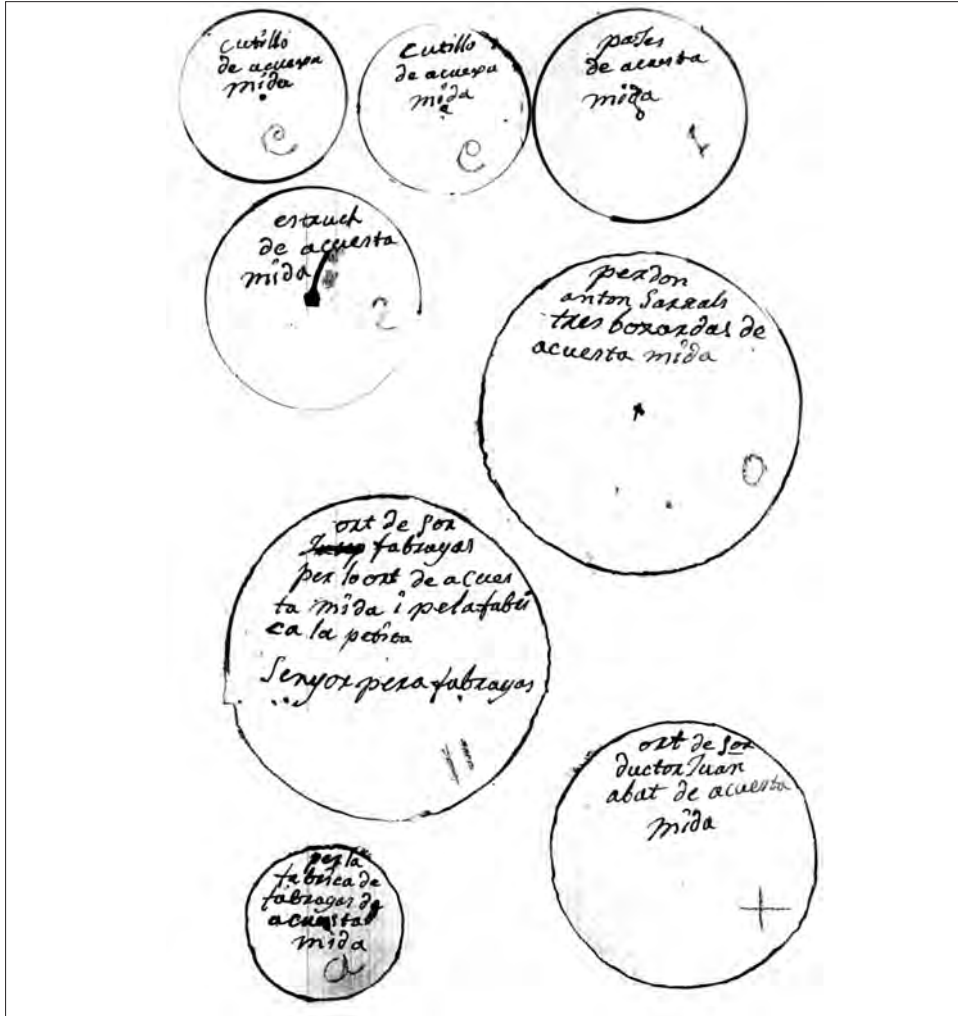 cutillo
de acuexpa
mida
C
cutillo
de acuexpa
mida
C
pases
de acuesta
mida
1
estruch
de acuesta
mida
2
perdon
anton sarrals
tres borardas de
acuesta mida
O
ort de sor
fabragas
per lo ort de acues
ta mida i pelafabri
ca la petita
senyor pera fabragas
II
ort de sor
ductor Juan
abat de acuesta
mida
+
per la
fabrica de
fabragas de
acuesta
mida
a